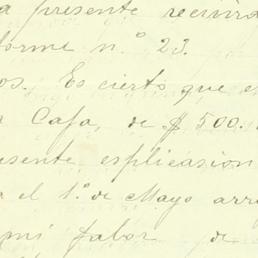 a presente recivira
forme n.º 23.
os. Es cierto que e
a Cafa, de $ 500.
esente esplicasion
a el 1º. de Mayo arr
mi fabor de